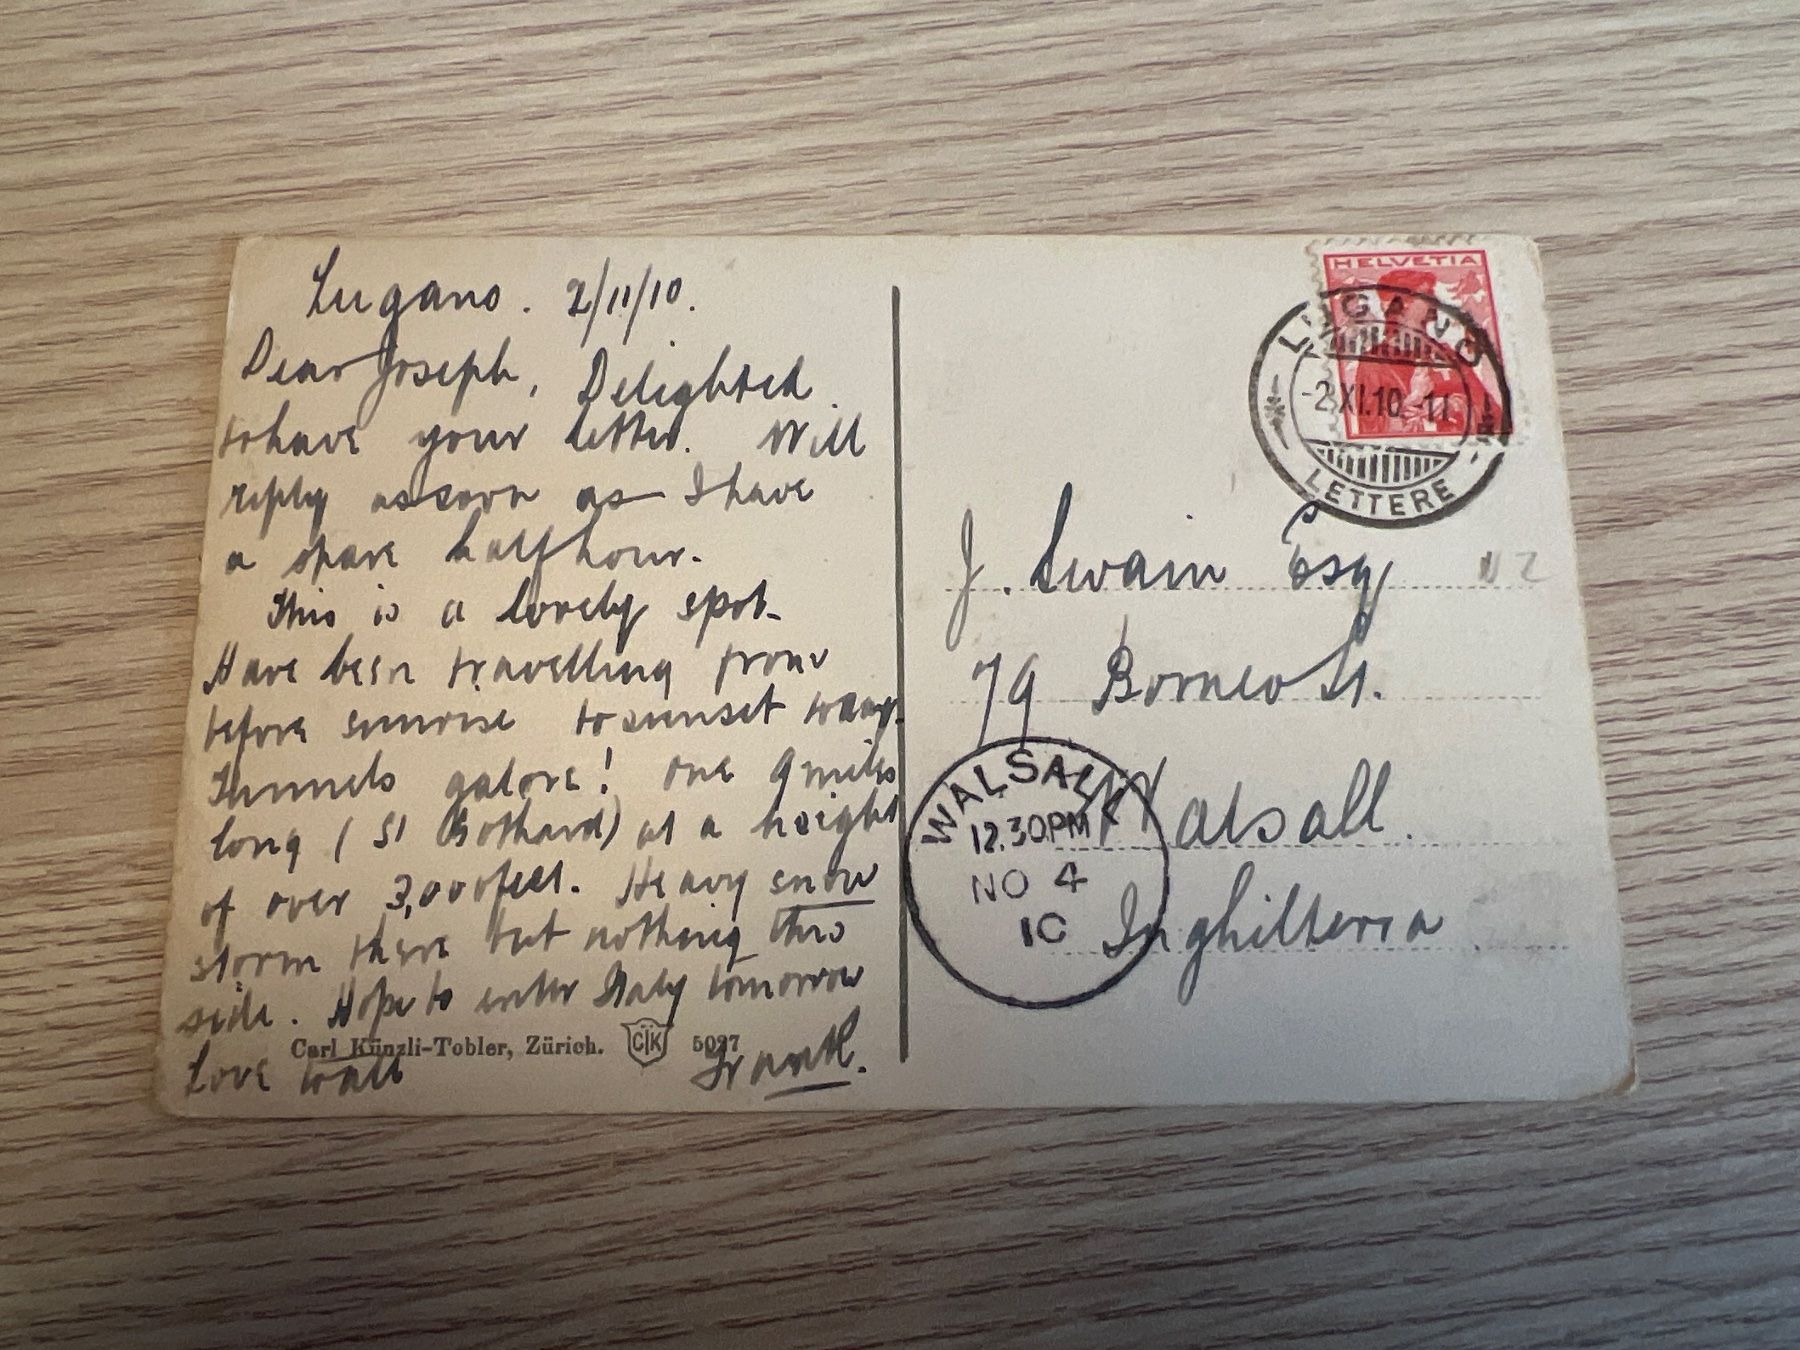 Lugano. 2/11/10.
Dear Joseph, Delighted
to have your letter. Will
reply as soon as I have
a spare half hour.
This is a lovely spot.
Have been travelling from
before sunrise to sunset today.
Tunnels galore! One 9 miles
long (St Gothard) at a height
of over 3,000 feet. Heavy snow
storm there but nothing this
side. Hope to enter Italy tomorrow
Love to all Frank.
Carl Künzli-Tobler, Zürich. CK 5027
HELVETIA
LUGANO
-2.XI.10.-11
LETTERE
J. Swain Esq
79 Borneo St.
Walsall.
Inghilterra
WALSALL
12.30PM
NO 4
10